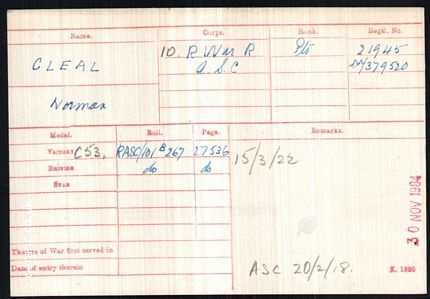 Name. Corps. Rank. Regtl. No.
CLEAL 10. R War R Pte 21945
A.S.C 379520
Norman
Medal. Roll. Page. Remarks.
VICTORY C53. RASC/101 B 267 27536 15/3/22
BRITISH do do
STAR
30 NOV 1984
Theatre of War first served in
Date of entry therein
ASC 20/2/18. K. 1380